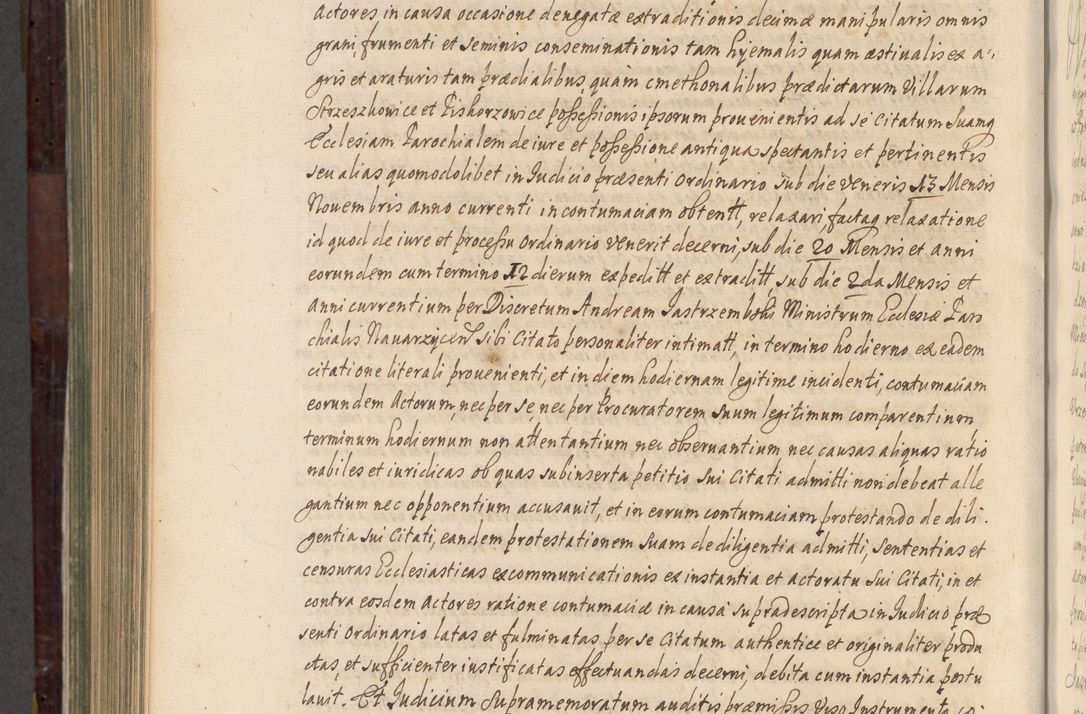 Actores in causa occasione denegatæ extraditionis decimæ manipularis omnis
grani, frumenti et seminis conseminationis tam hyemalis quam æstivalis ex a-
gris et araturis tam prædialibus, quàm cmethonalibus prædictarum Villarum
Strzeszkowice et Piskorzowice possessionis ipsorum provenientis ad se Citatum Suamq
Ecclesiam Parochialem de iure et possessione antiqua spectantis et pertinentis
seu alias quomodolibet in Iudicio præsenti Ordinario sub die Veneris 13 Mensis
Novembris anno currenti in contumaciam obtentt, relaxari, factaq relaxatione
id quod de iure et processu Ordinario venerit decerni, sub die 20 Mensis et anni
eorundem cum termino 12 dierum expeditt et extraditt, sub die 2da Mensis et
Anni currentium per Discretum Andream Jastrzembski Ministrum Ecclesiæ Paro
chialis Navarzycen Sibi Citato personaliter intimatt, in termino hodierno ex eadem
citatione literali provenienti, et in diem hodiernam legitime incidenti, contumaciam
eorundem Actorum, nec per se, nec per Procuratorem suum legitimum comparentium
terminum hodiernum non attentantium nec observantium nec causas aliquas ratio
nabiles et iuridicas ob quas subinserta petitio Sui Citati admitti non debeat alle
gantium nec opponentium accusavit, et in eorum contumaciam protestando de dili-
gentia sui Citati, eandem protestationem suam de diligentia admitti, Sententias et
censuras Ecclesiasticas excommunicationis ex instantia et actoratu Sui Citati, in et
contra eosdem Actores ratione contumaciæ in causa supradescripta in Iudicio præ
senti Ordinario latas et fulminatas per se Citatum authentice et originaliter produ
ctas, et sufficienter iustificatas effectuandas decerni, debita cum instantia postu
lavit. Et Iudicium Supramemoratum auditis præmissis Viso Instrumento